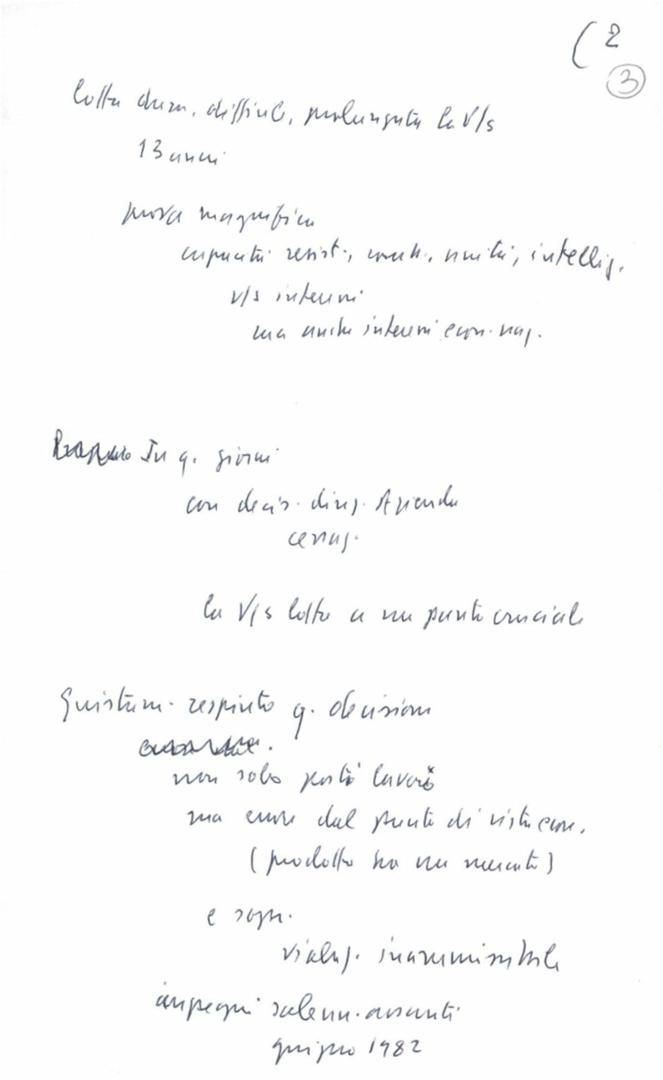 (2
3
lotta dura, difficile, prolungata la V/s
13 anni
prova magnifica
capacità resist., comb., unità, intellig.
v/s interessi
ma anche interessi econ. naz.
In q. giorni
con decis. dirig. Azienda
la V/s lotta a un punto cruciale
Giustam. respinto q. decisione
non solo posti lavoro
ma anche dal punto di vista econ.
(prodotto ha un mercato)
e sopr.
violaz. inammissibile
impegni solenn. assunti
giugno 1982